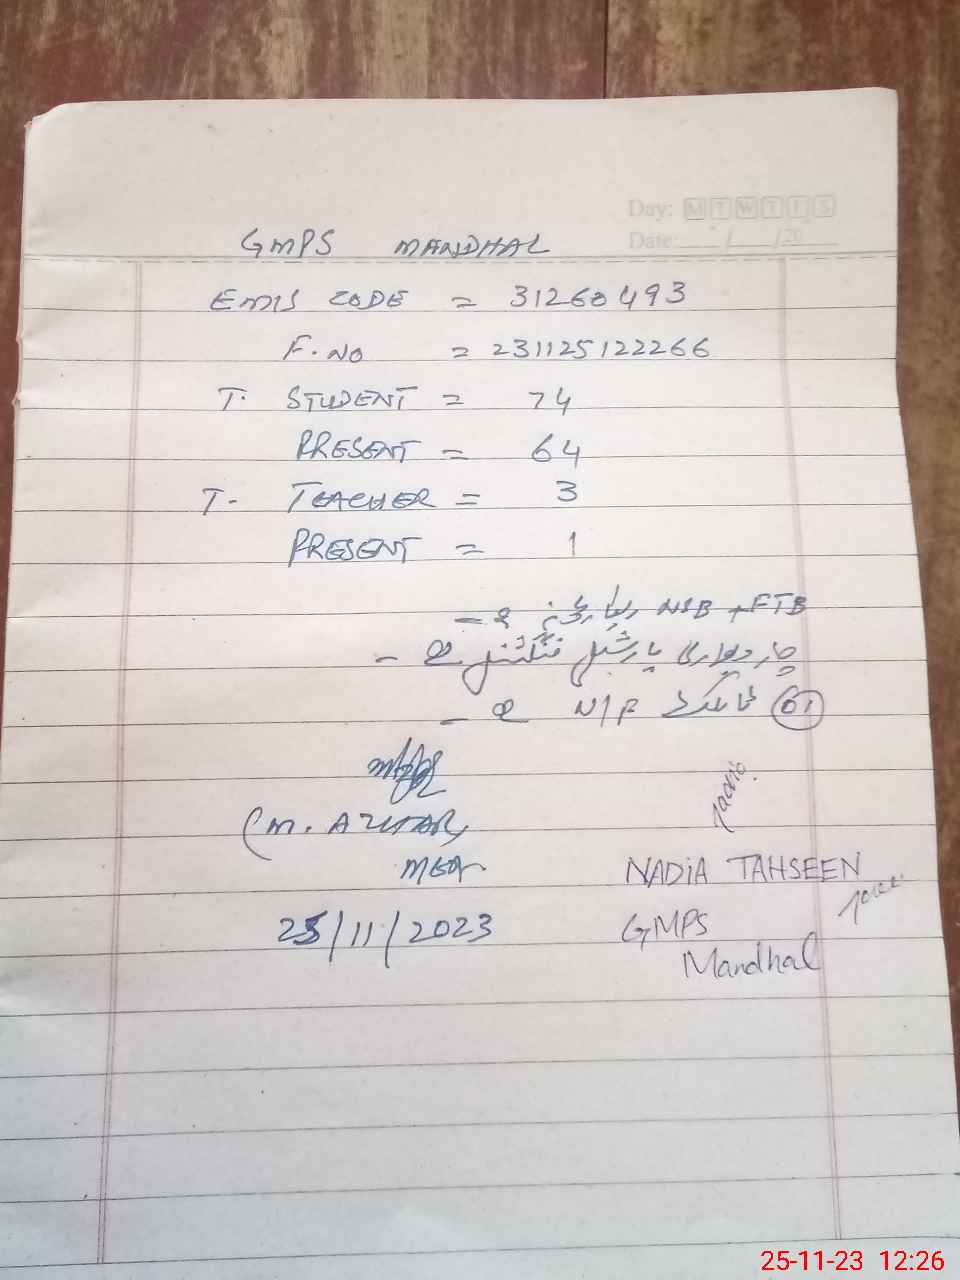 Day: M T W T F S
Date:___/___/20___
GMPS MANDHAL
EMIS CODE = 31260493
F. NO = 231125122266
T. STUDENT = 74
PRESENT = 64
T. TEACHER = 3
PRESENT = 1
NSB + FTB ہے ۔
چار دیواری پارشلی فنکشنل ہے ۔
01 ٹائلٹ N/F ہے ۔
(M. AZHAR)
MEA
25/11/2023
Nadia
NADIA TAHSEEN
GMPS
Mandhal
25-11-23 12:26